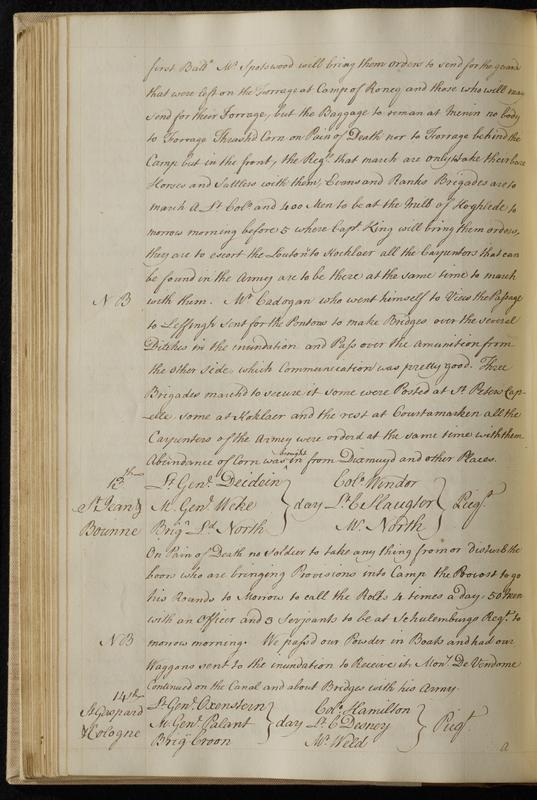 first Batt.n Mr. Spotswood will bring them orders to send for the guard
that were left on the Forrage at Camp of Roncy and those who will may
Send for their Forrage, but the Baggage to reman at Menin no body
to Forrage Thrash'd Corn on Pain of Death nor to Forrage behind the
Camp but in the front, the Reg.ts that march are only to take their bare
Horses and Suttlers with them, Evans and Ranks Brigades are to
march A Lt. Col.o and 400 Men to be at the Mill of Hoghlede to
morrow morning before 5 where Capt. King will bring them orders,
they are to escort the to Hocklaer all the Carpenters that can
be found in the Army are to be there at the same time to march
N B with them. Mr. Cadogan who went himself to View the Passage
to Leffingh sent for the Pontons to make Bridges over the several
Ditches in the inundation and Pass over the Amunition from
the other side which Communication was pretty good. Three
Brigades march'd to secure it some were Posted at St. Peters Cap-
-elle some at Hoklaer and the rest at Courtamarken all the
Carpenters of the Army were orderd at the same time with them
Abundance of Corn was brought in from Dixmuyd and other Places.
13th Lt. Gen.l Deidein Col.o Windsor
St Jean, M. Gen.l Weke day Lt. C Slaugter Piq.t
Bovinne Brig.r Ld. North Mr. North
On Pain of Death no Soldier to take any thing from or disturb the
boors who are bringing Provisions into Camp the Provost to go
his Rounds to Morrow to call the Rolls 4 times a day. 50 Men
with an Officer and 3 Serjeants to be at Schulemburgs Reg.t to
N B morrow morning. We pass'd our Powder in Boats and had our
Waggons sent to the inundation to Receive it. Mon.r De Vendome
Continued on the Canal and about Bridges with his Army.
14th Lt. Gen.l Oxenstern Col.o Hamilton
St. Gaspard M. Gen.l Palant day Lt. C Desney Piq.t
& Cologne Brig.r Croon Mr. Weld
a